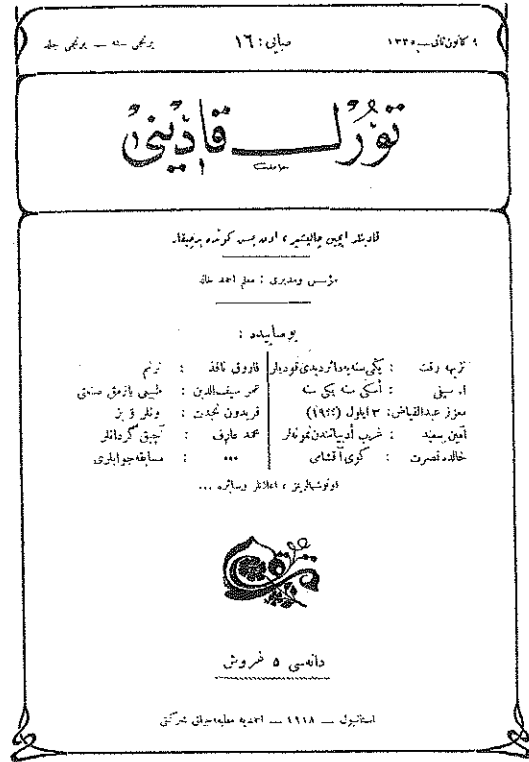 ٩ كانون ثانى ١٣٣٥ صايى : ١٦ برنجى سنه — برنجى جلد
تورك قادينى
قادينلر ايچين چاليشير ، اون بش كونده بر چيقار
مؤسس ومديرى : معلم احمد
بو صاييده :
نزيهه رفعت : يكى سنه يه دائر ديدى قوديلر
فاروق نافذ : ترنم
ا. سيفى : أسكى سنه يكى سنه
عمر سيف الدين : يازمق صنعتى
معزز عبدالفياض : ٣ ايلول (١٩٤٤)
فريدون نجدت : ونلر و بز
أمين سعيد : غرب أدبياتندن نمونه لر
محمد عارف : آچيق گردانلر
خالده نصرت : كوى آقشامى
٠٠٠ : مسابقه جوابلرى
، اعلانلر وسائره ...
دانه سى ٥ غروش
استانبول — ١٩١٨ — احمديه مطبعه جيلق شركتى